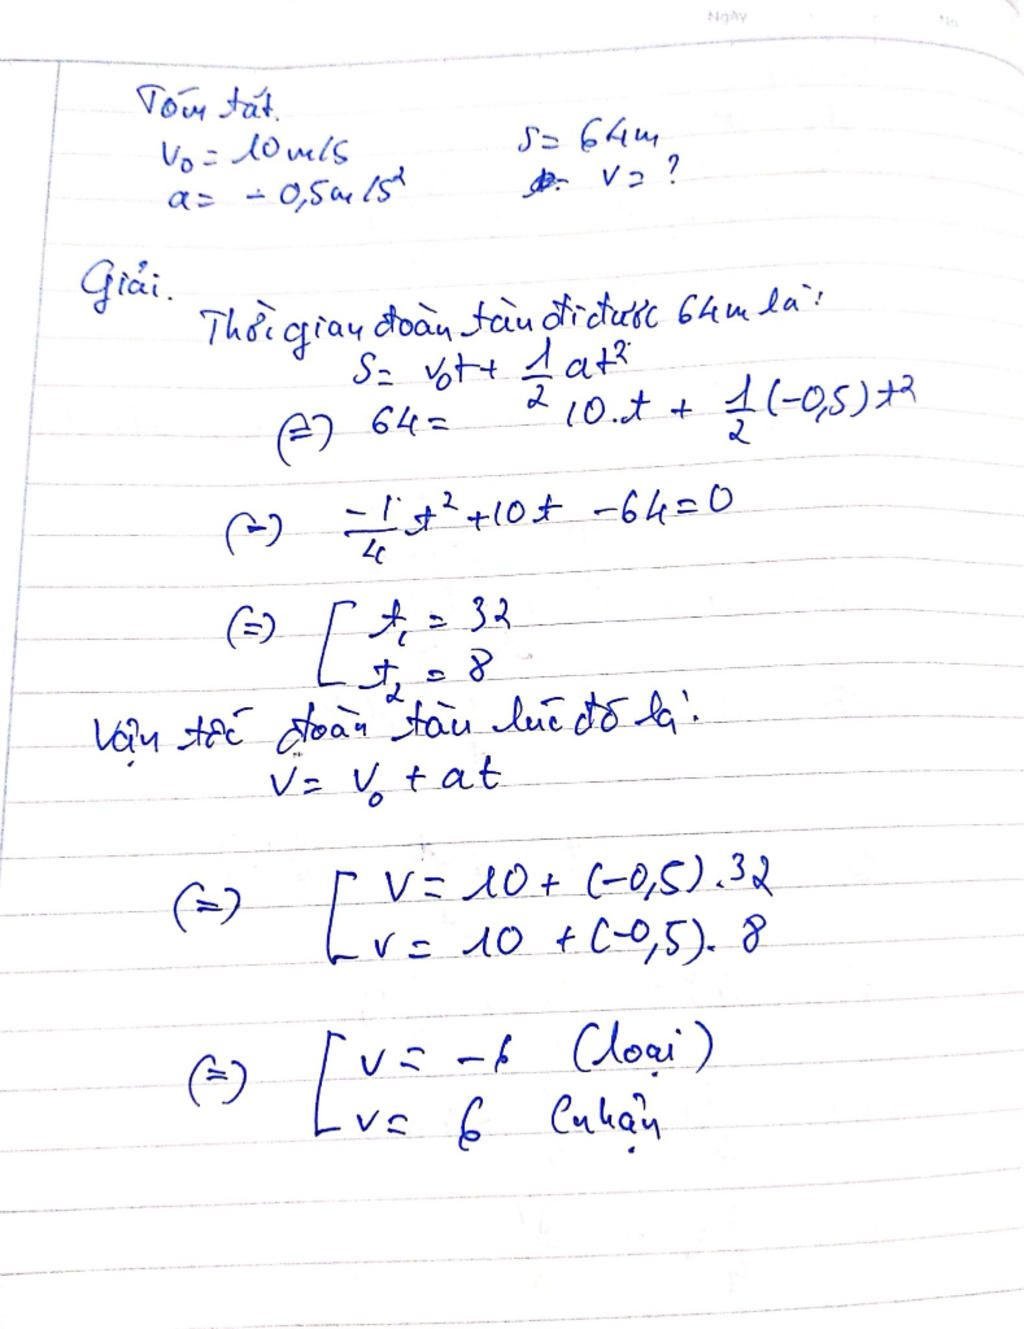 Ngày No
Tóm tắt.
v₀ = 10 m/s
a = - 0,5 m/s²
S = 64m
v = ?
Giải.
Thời gian đoàn tàu đi được 64m là:
S = v₀t + 1/2 at²
(=) 64 = 10.t + 1/2 (-0,5) t²
(=) -1/4 t² + 10t - 64 = 0
(=) [ t₁ = 32
t₂ = 8
Vận tốc đoàn tàu lúc đó là:
V = V₀ + at
(=) [ V = 10 + (-0,5).32
v = 10 + (-0,5). 8
(=) [ v = -6 (loại)
v = 6 (nhận